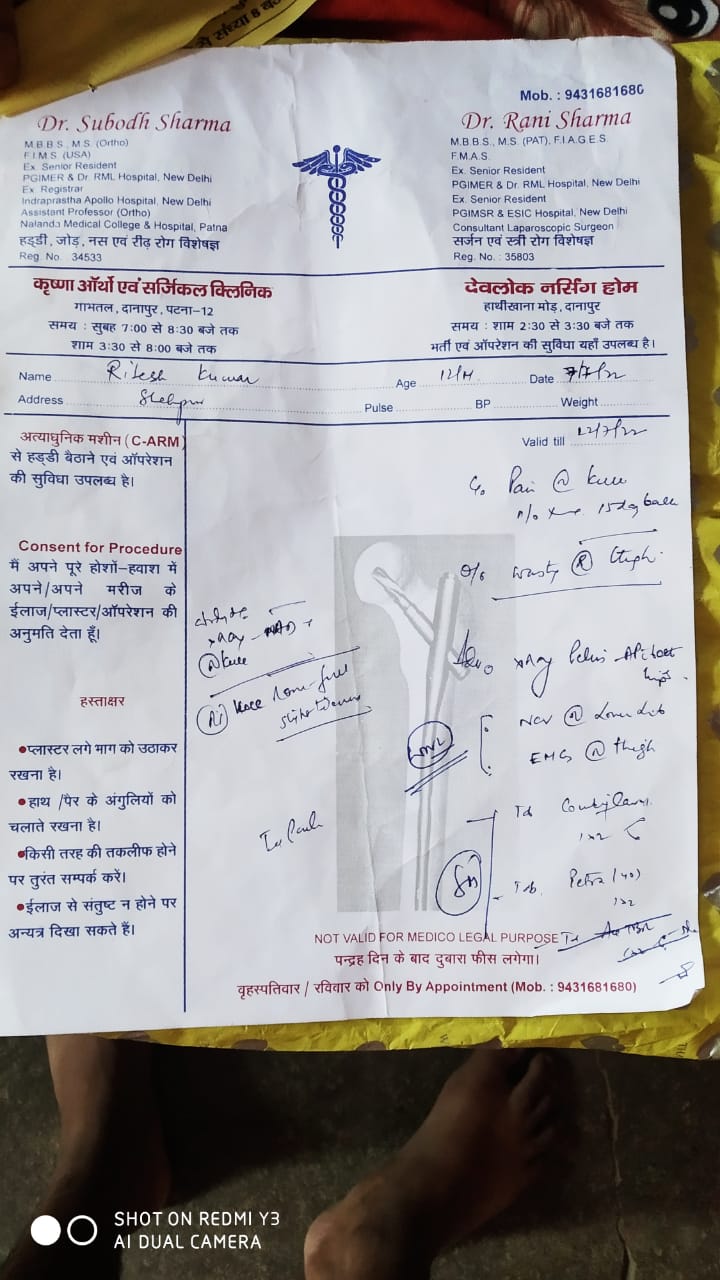 से संध्या 8 बजे
Mob. : 9431681680
Dr. Subodh Sharma
M.B.B.S., M.S. (Ortho)
F.I.M.S. (USA)
Ex. Senior Resident
PGIMER & Dr. RML Hospital, New Delhi
Ex. Registrar
Indraprastha Apollo Hospital, New Delhi
Assistant Professor (Ortho)
Nalanda Medical College & Hospital, Patna
हड्डी, जोड़, नस एवं रीढ़ रोग विशेषज्ञ
Reg. No. 34533
Dr. Rani Sharma
M.B.B.S., M.S. (PAT), F.I.A.G.E.S.
F.M.A.S.
Ex. Senior Resident
PGIMER & Dr. RML Hospital, New Delhi
Ex. Senior Resident
PGIMSR & ESIC Hospital, New Delhi
Consultant Laparoscopic Surgeon
सर्जन एवं स्त्री रोग विशेषज्ञ
Reg. No. : 35803
कृष्णा ऑर्थो एवं सर्जिकल क्लिनिक
गाभतल, दानापुर, पटना-12
समय : सुबह 7:00 से 8:30 बजे तक
शाम 3:30 से 8:00 बजे तक
देवलोक नर्सिंग होम
हाथीखाना मोड़, दानापुर
समय : शाम 2:30 से 3:30 बजे तक
भर्ती एवं ऑपरेशन की सुविधा यहाँ उपलब्ध है।
Name Ritesh Kumar Age 12/M Date 7/7/22
Address Pulse BP Weight
Valid till 12/7/22
अत्याधुनिक मशीन (C-ARM)
से हड्डी बैठाने एवं ऑपरेशन
की सुविधा उपलब्ध है।
Consent for Procedure
मैं अपने पूरे होशों-हवाश में
अपने/अपने मरीज के
ईलाज/प्लास्टर/ऑपरेशन की
अनुमति देता हूँ।
हस्ताक्षर
•प्लास्टर लगे भाग को उठाकर
रखना है।
•हाथ /पैर के अंगुलियों को
चलाते रखना है।
•किसी तरह की तकलीफ होने
पर तुरंत सम्पर्क करें।
•ईलाज से संतुष्ट न होने पर
अन्यत्र दिखा सकते हैं।
C/o Pain (R) knee
15 day back
O/E wasting (R) thigh
Adv xray Pelvis - AP both
hips
NCV (R) lower limb
EMG (R) thigh
xray - NAD
(R) knee
(R) knee
1x2
Tab
1x2
NOT VALID FOR MEDICO LEGAL PURPOSE
पन्द्रह दिन के बाद दुबारा फीस लगेगा।
वृहस्पतिवार / रविवार को Only By Appointment (Mob. : 9431681680)
SHOT ON REDMI Y3
AI DUAL CAMERA